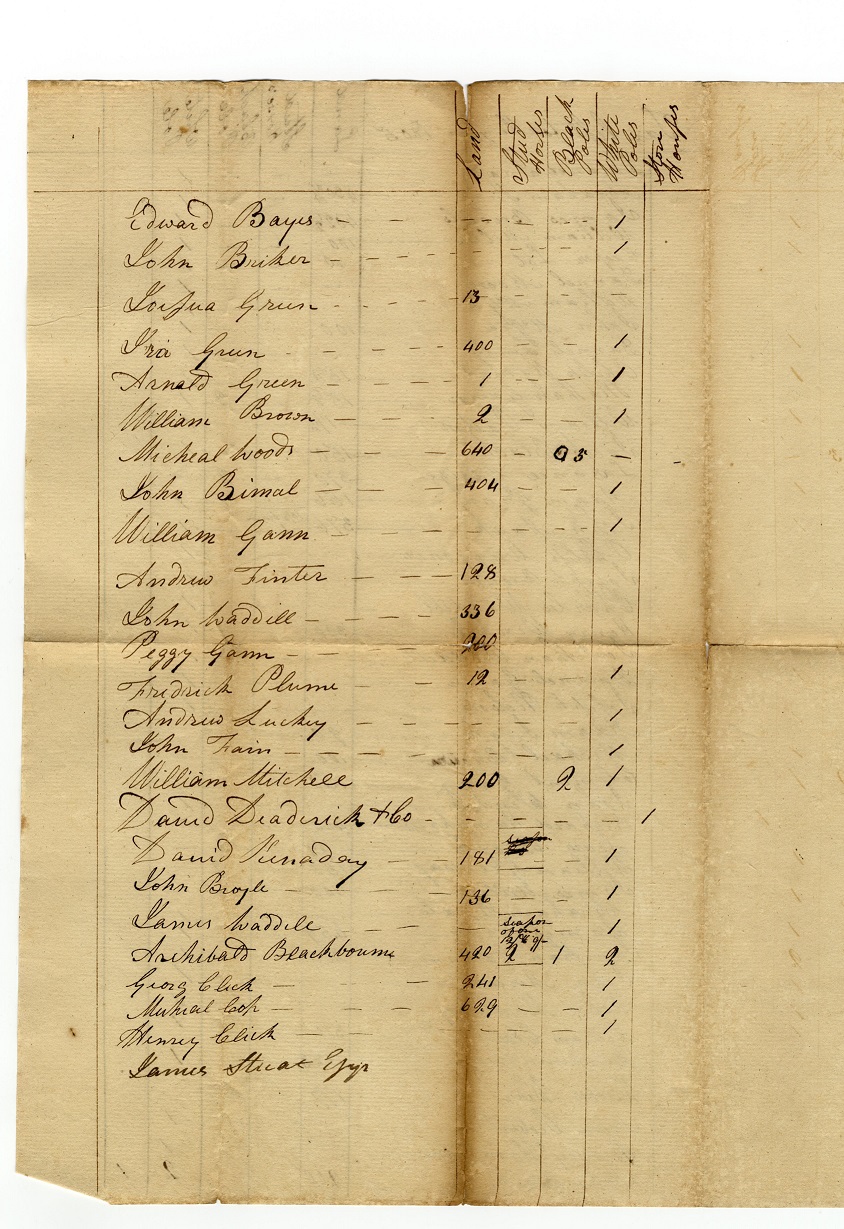 Land Stud Horses Black Poles White Poles Store Houses
Edward Bayes - - - - - - 1
John Briker - - - - - - - 1
Joshua Green - - - 13 - - -
Ira Green - - - 400 - - 1
Arnald Green - - - 1 - - 1
William Brown - - - 2 - - 1
Micheal Woods - - - 640 - 5 -
John Bimal - - - 404 - - 1
William Gann - - - - - - 1
Andrew Finter - - - 128
John Waddill - - - 336
Peggy Gann - - 200
Fredrick Plume - - 12 - - 1
Andrew Luckey - - - - - - 1
John Fain - - - - - - - 1
William Mitchell 200 2 1
David Deaderick & Co - - - - - 1
David Kenaday - - 181 - 1
John Broyle - - - 136 - - 1
James Waddill - - - - 1
season of one
Archibald Blackbourne 420 2 1 2
Georg Click - - - 241 - 1
Micheal Cop - - 629 - - 1
Henrey Click - - - - - 1
James Stuat Esqr